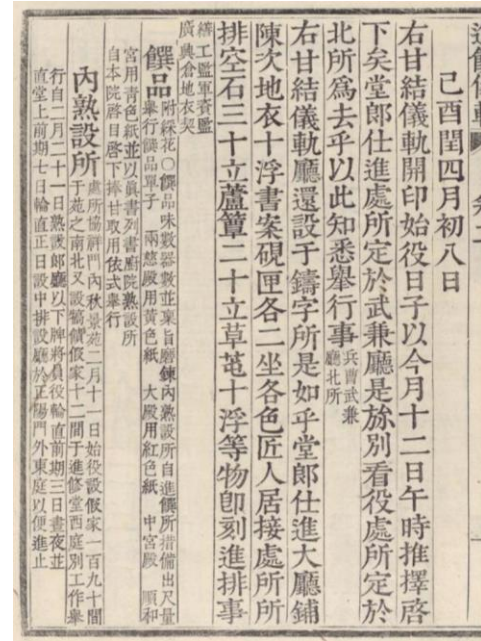 己酉閏四月初八日
右甘結儀軌開印始役日子以今月十二日午時推擇啓
下矣堂郞仕進處所定於武兼廳是旀別看役處所定於
北所爲去乎以此知悉擧行事兵曹武兼
廳北所
右甘結儀軌廳還設于鑄字所是如乎堂郞仕進大廳鋪
陳次地衣十浮書案硯匣各二坐各色匠人居接處所所
排空石三十立蘆簟二十立草芚十浮等物卽刻進排事
繕工監軍資監
廣興倉地衣契
饌品附綵花○饌品味數器數並稟旨磨鍊內熟設所自進饌所措備出尺量
擧行饌品單子 兩慈殿用黃色紙 大殿用紅色紙 中宮殿 順和
宮用靑色紙並以眞書列書廚院熟設所
自本院啓目啓下捧甘取用依式擧行
內熟設所處所協祥門內秋景苑二月十一日始役設假家一百九十間
于苑之南北又設犒饋假家十二間于進修堂西庭別工作擧
行自二月二十一日熟設郞廳以下牌將員役輪直前期三日晝夜並
直堂上前期七日輪直正日設中排設廳於正陽門外東庭以便進止